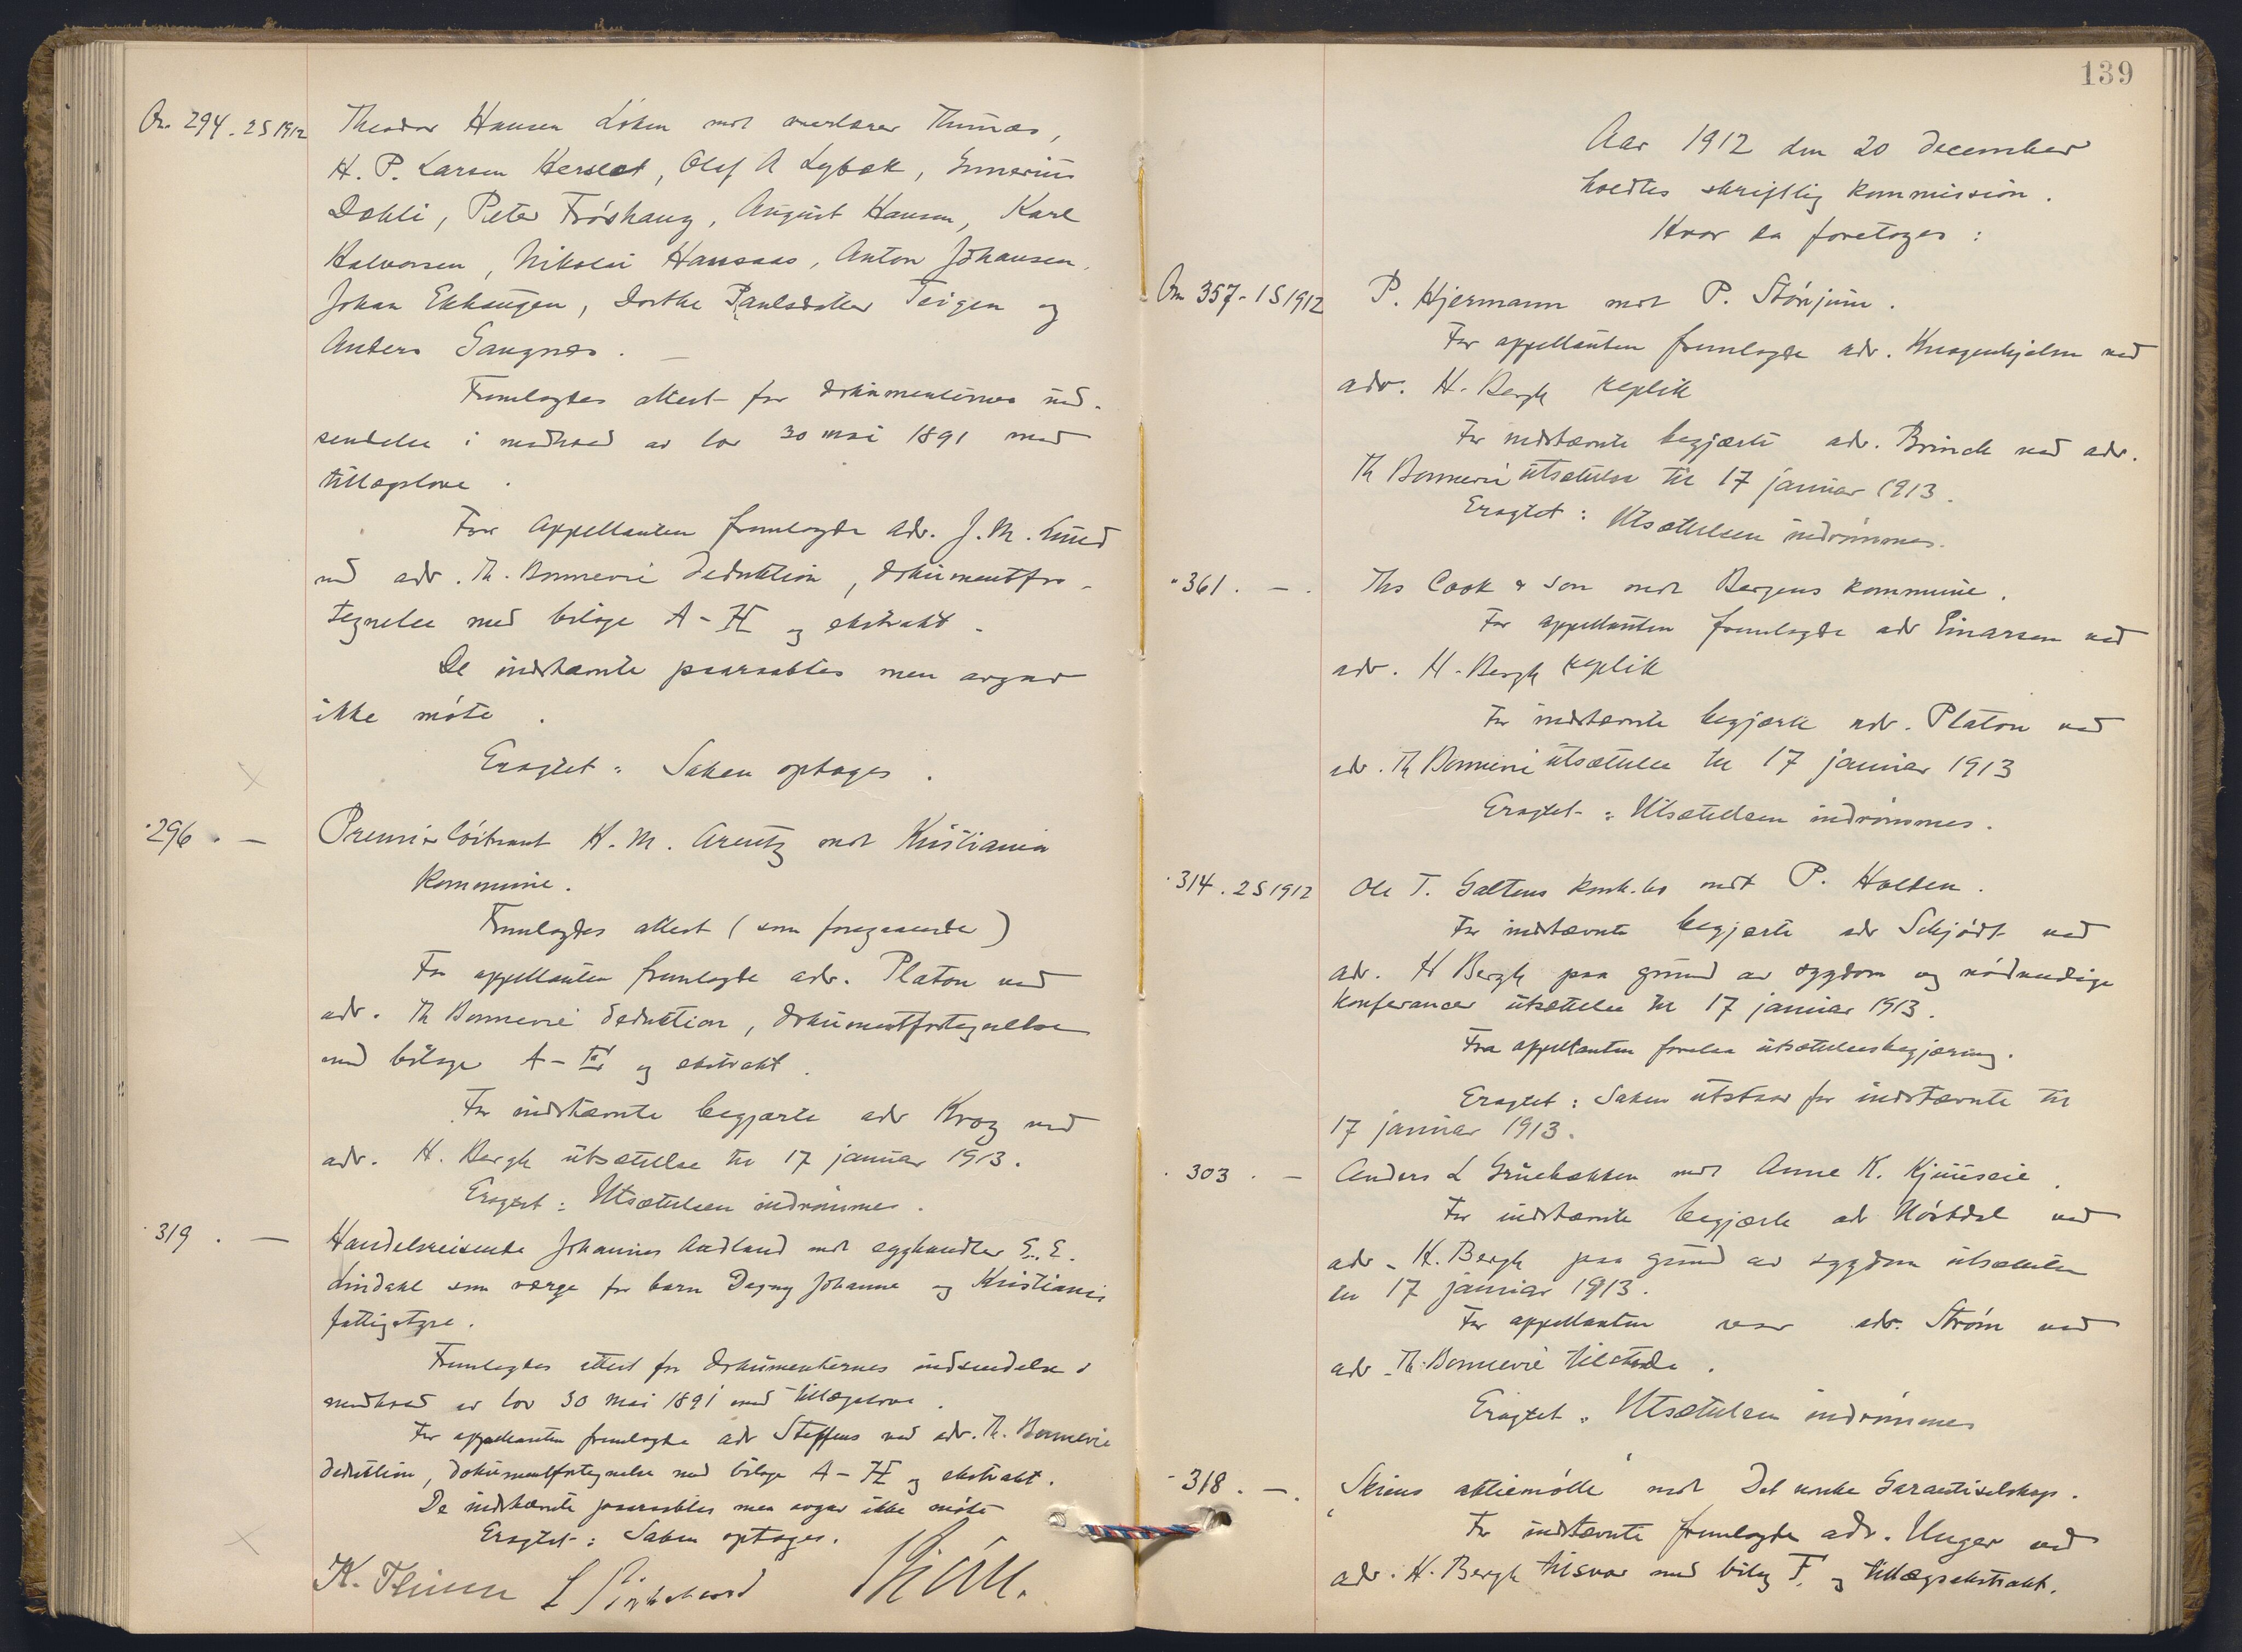 Nr. 294. 2S 1912 Theodor Hansen Løken mot overlærer Thunæs,
H. P. Larsen Herslet, Olef A Lybæk, Emerius
Døhli, Peter Frøshaug, August Hansen, Karl
Halvorsen, Nikolai Hansaas, Anton Johansen,
Johan Ekhaugen, Dorthe Paulsdatter Teigen og
Anders Gaugnæs.
Fremlagdes attest for dokumenternes ind-
sendelse i medhold av lov 30 mai 1891 med
tillægslove.
For Appellanten fremlagde Adv. J. M. Lund
ved adv. Th. Bonnevie deduktion, dokumentfor-
tegnelse med bilage A - H og ekstrakt.
De indstævnte paaraabtes men avgav
ikke møte.
Eragtet: Saken optages.
" 296. — Premierløitnant H. M. Arentz mot Kristiania
kommune.
Fremlagdes attest (som foregaaende)
For appellanten fremlagde adv. Platou ved
adv. Th Bonnevie deduktion, dokumentfortegnelse
med bilage A - og ekstrakt.
For indstævnte begjærte adv Krog ved
adv. H. Bergh utsættelse til 17 januar 1913.
Eragtet: Utsættelsen indrømmes.
" 319. — Handelsreisende Johannes Aadland mot egghandler E. E.
Lindahl som værge for barn Dagny Johanne og Kristiania
fattigstyre.
Fremlagdes attest for dokumenternes indsendelse i
medhold av lov 30 mai 1891 med tillægslove.
For appellanten fremlagde adv Steffens ved adv. Th. Bonnevie
deduktion, dokumentfortegnelse med bilage A - H og ekstrakt.
De indstævnte paaraabtes men avgav ikke møte
Eragtet: Saken optages.
K.
139
Aar 1912 den 20 december
holdtes skriftlig kommission.
Hvor da foretoges:
Nr. 357 - 1S 1912 P. Hjermann mot P. Stønjum.
For appellanten fremlagde adv. Knagenhjelm ved
adv. H. Bergh replik
For indstævnte begjærte adv. Brinch ved adv.
Th Bonnevie utsættelse til 17 januar 1913.
Eragtet: Utsættelsen indrømmes.
" 361. —. Ths Cook & Son mot Bergens kommune.
For appellanten fremlagde adv Einarsen ved
adv. H. Bergh replik
For indstævnte begjærte adv. Platou ved
adv. Th Bonnevie utsættelse til 17 januar 1913
Eragtet: Utsættelsen indrømmes.
" 314. 2S 1912 Ole T. Galtens konk.bo mot P. Holden.
For indstævnte begjærte adv Schjødt ved
adv. H Bergh paa grund av sygdom og nødvendige
konferancer utsættelse til 17 januar 1913.
Fra appellanten forelaa utsættelsesbegjæring.
Eragtet: Saken utstaar for indstævnte til
17 januar 1913.
" 303. — Anders L Gruebækken mot Anne K. Kjuuseie.
For indstævnte begjærte adv Høstdal ved
adv. H. Bergh paa grund av sygdom utsættelse
til 17 januar 1913.
For appellanten var adv. Strøm ved
adv. Th. Bonnevie tilstede.
Eragtet: Utsættelsen indrømmes
" 318. —. Skiens aktiemølle mot Det norske Garantiselskap.
For indstævnte fremlagde adv. Unger ved
adv. H. Bergh tilsvar med bilag F. og tillægsekstrakt.